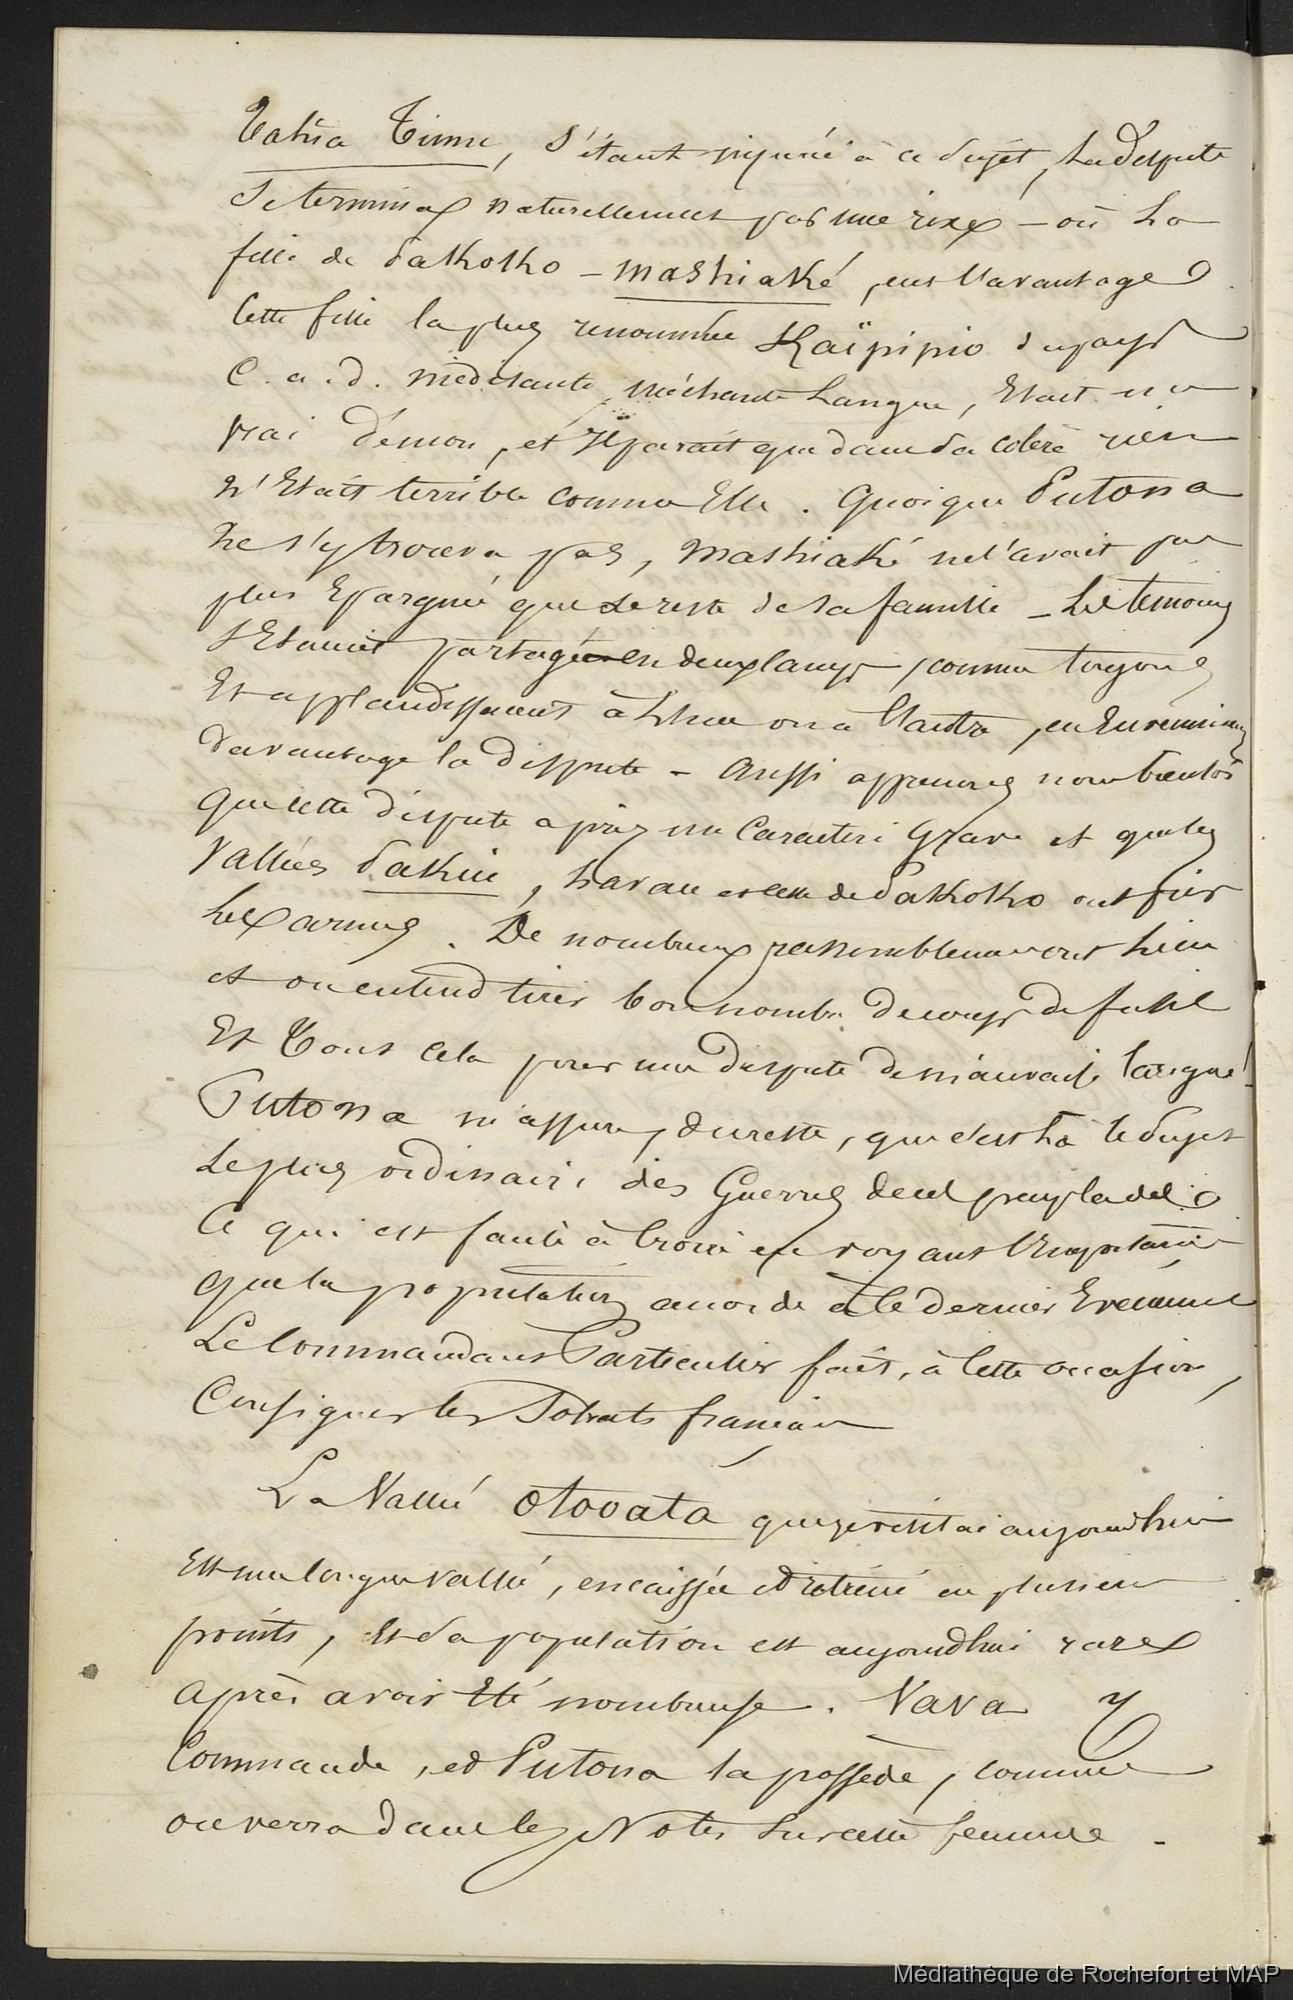 Tahia Timu, s'étant injurié à ce sujet, la dispute
Se termina naturellement par une rixe — où la
fille de Pakokko — Mashiaké, eut l'avantage
Cette fille la plus renommée Kaïpipio du pays
C. a. d. médisante, méchante langue, Etait un
vrai démon, et Il parait que dans sa colère rien
N'Etait terrible comme Elle. Quoique Putona
Ne s'y trouva pas, Mashiaké ne l'avait pas
plus Epargné que le reste de sa famille — Les témoins
S'Etaient partagés en deux camps, comme toujours
Et applaudissaient à l'une ou à l'autre, en Envenimant
davantage la dispute — Aussi apprenons nous bientôt
Que cette dispute a pris un Caractère Grave et que les
Vallées Pakiu, havau et celle de Pakokko ont pris
les armes. De nombreux rassemblements ont lieu
et on entend tirer bon nombre de coups de fusil
Et Tout cela pour une dispute de mauvaise langue!
Putona m'assure, du reste, que c'est là le sujet
Le plus ordinaire des Guerres de ces peuplades
Ce qui est facile à croire en voyant l'importance
Que la population accorde à ce dernier Evénement
Le Commandant Particulier fait, à cette occasion,
Consigner les Soldats français
La Vallée Otooata que je visitai aujourd'hui
Est une longue vallée, encaissée et rétrécie en plusieurs
points, Et sa population est aujourd'hui rare
Après avoir Eté nombreuse. Vava y
Commande, et Putona la possède, comme
on verra dans les Notes sur cette femme —
Médiathèque de Rochefort et MAP